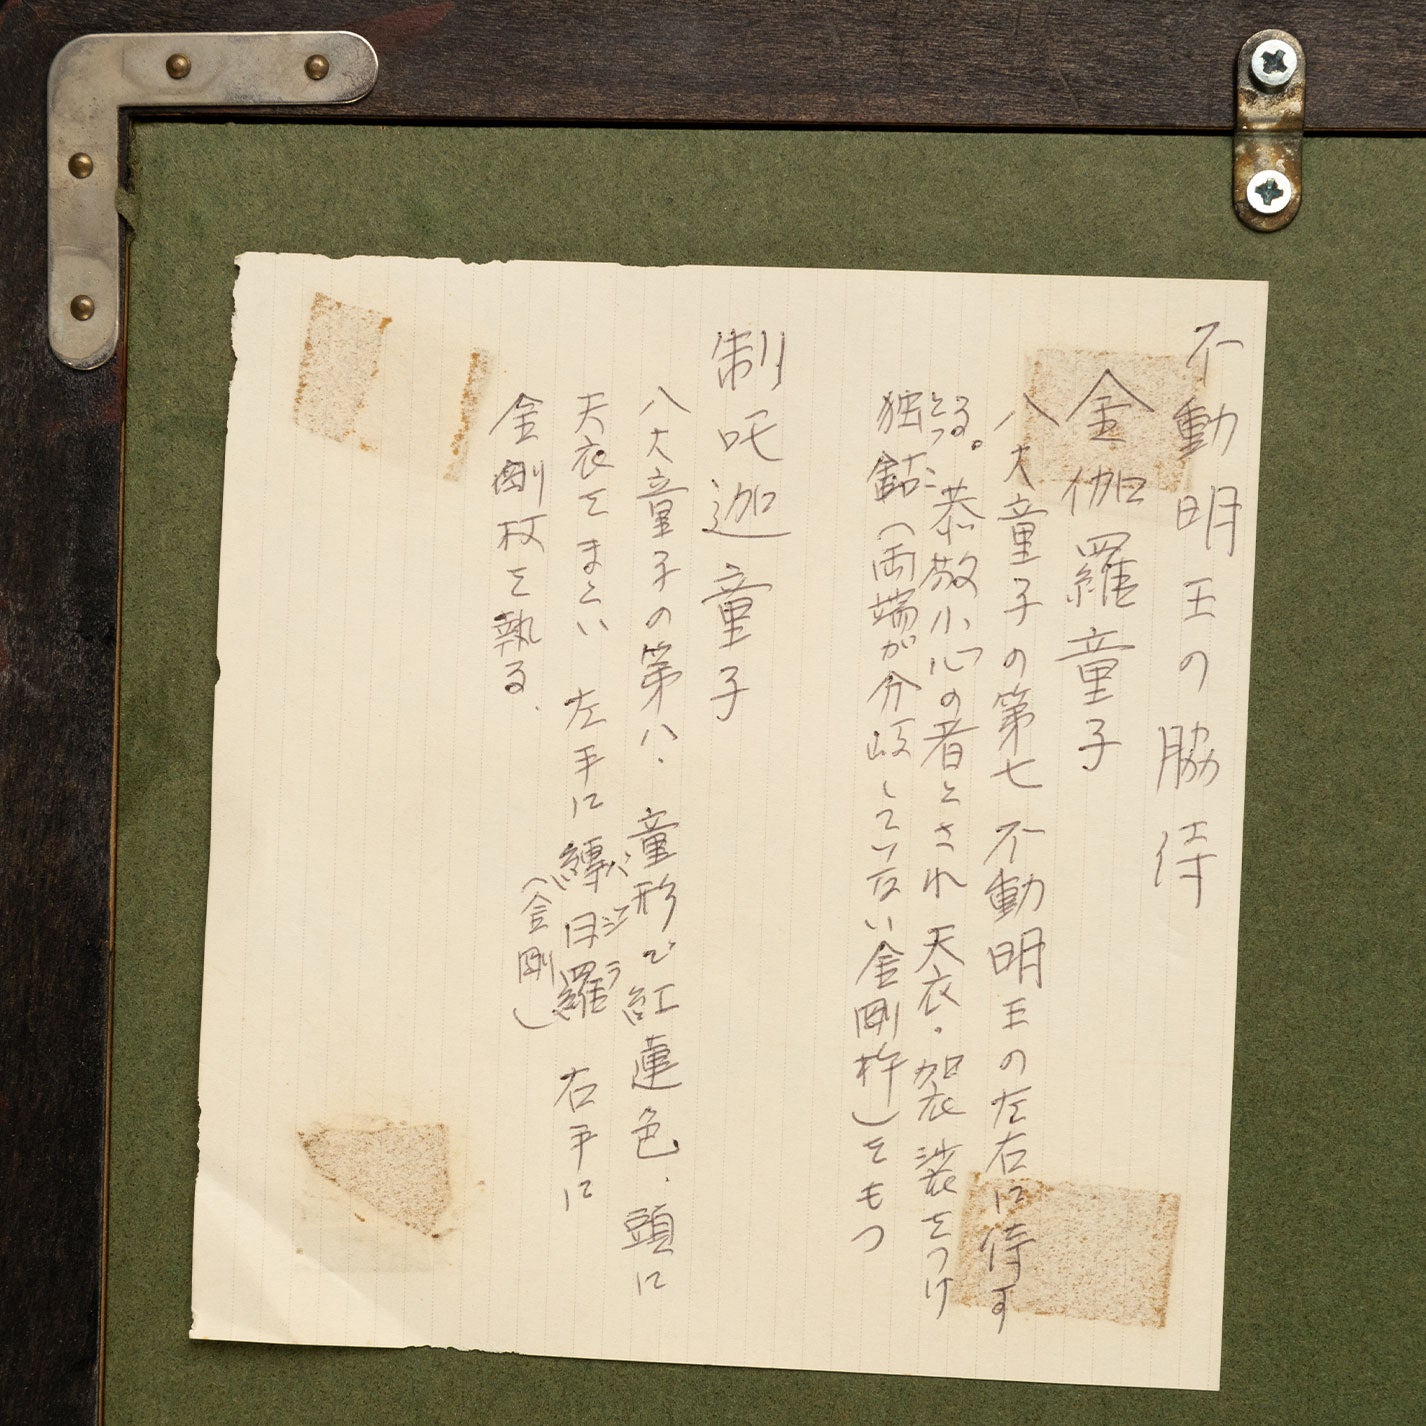 不動明王の脇侍
金伽羅童子
八大童子の第七 不動明王の左右に侍す
る。恭敬小心の者とされ 天衣・袈裟をつけ
独鈷(両端が分岐していない金剛杵)をもつ
とっこ
制吒迦童子
八大童子の第八、童形で紅蓮色、頭に
天衣をまとい 左手に縛日羅 右手に
バジラ
(金剛)
金剛杖を執る、